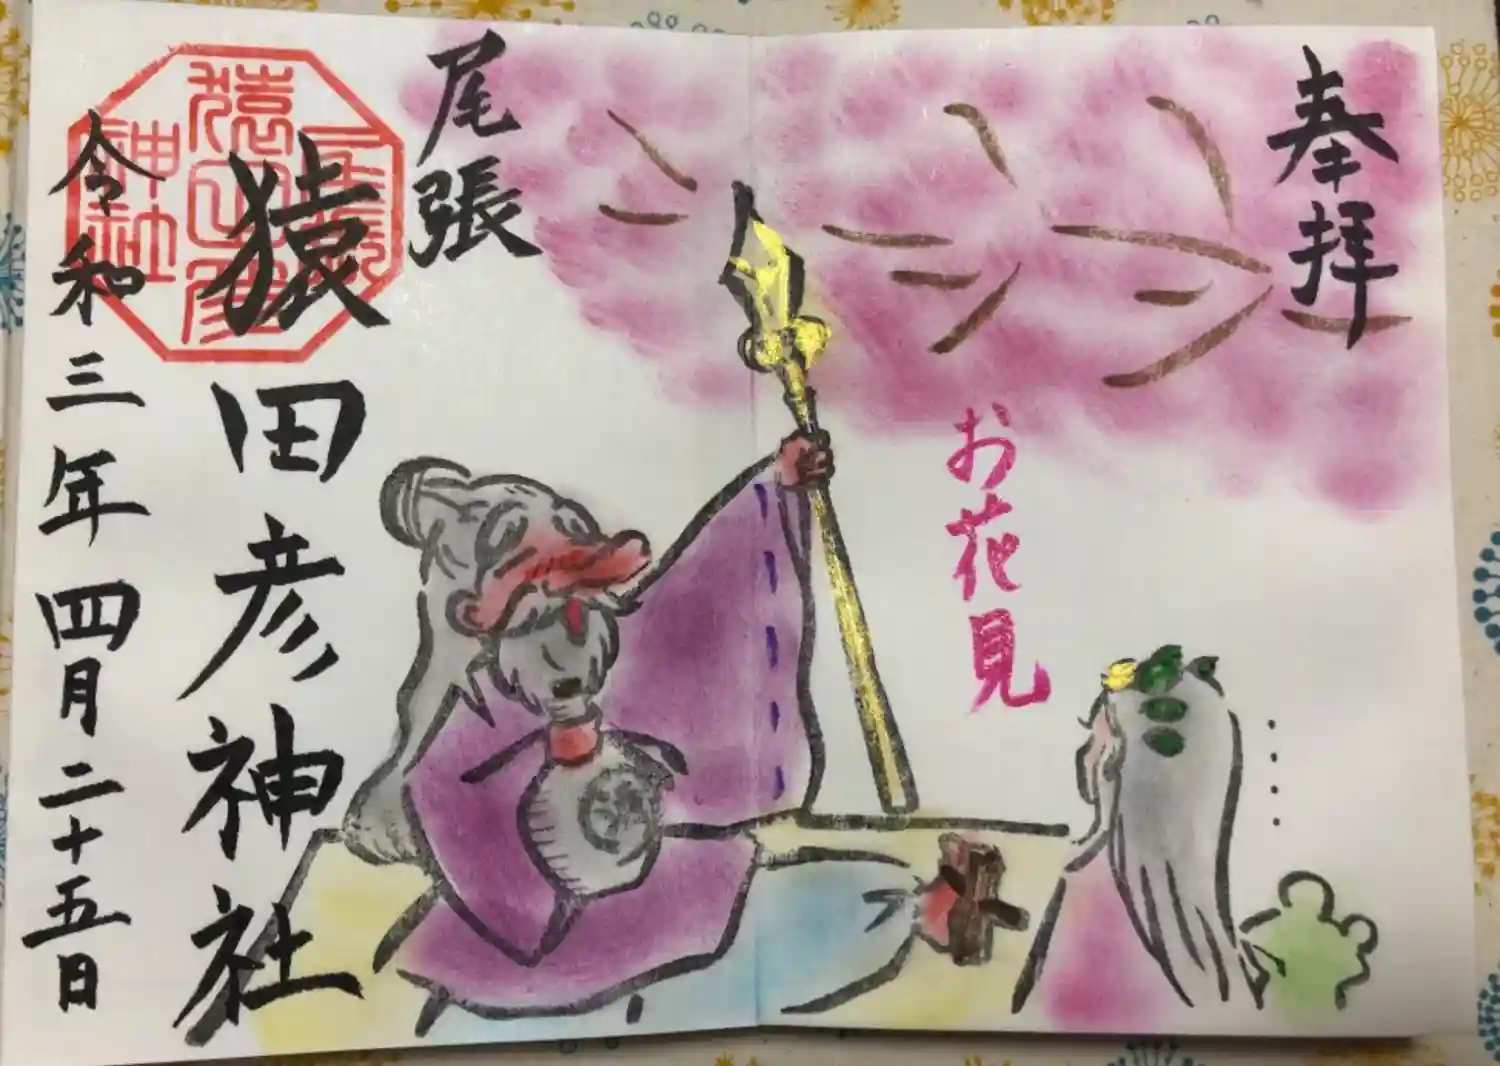 奉拝
お花見
尾張
猿田彦神社
令和三年四月二十五日
尾張
猿田彦
神社